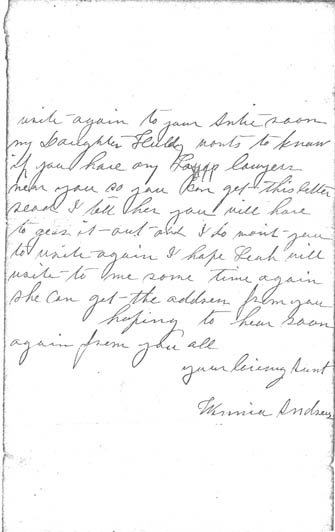 write again to your Antie soon
my Daughter Huldy wonts to know
if you have any lawyers
near you so you can get this letter
read I tell her you will have
to gess it out and I do wont you
to write again I hope Leah will
write to me some time again
she can get the address from you
hoping to hear soon
again from you all
your loving Aunt
Winnie Andrews